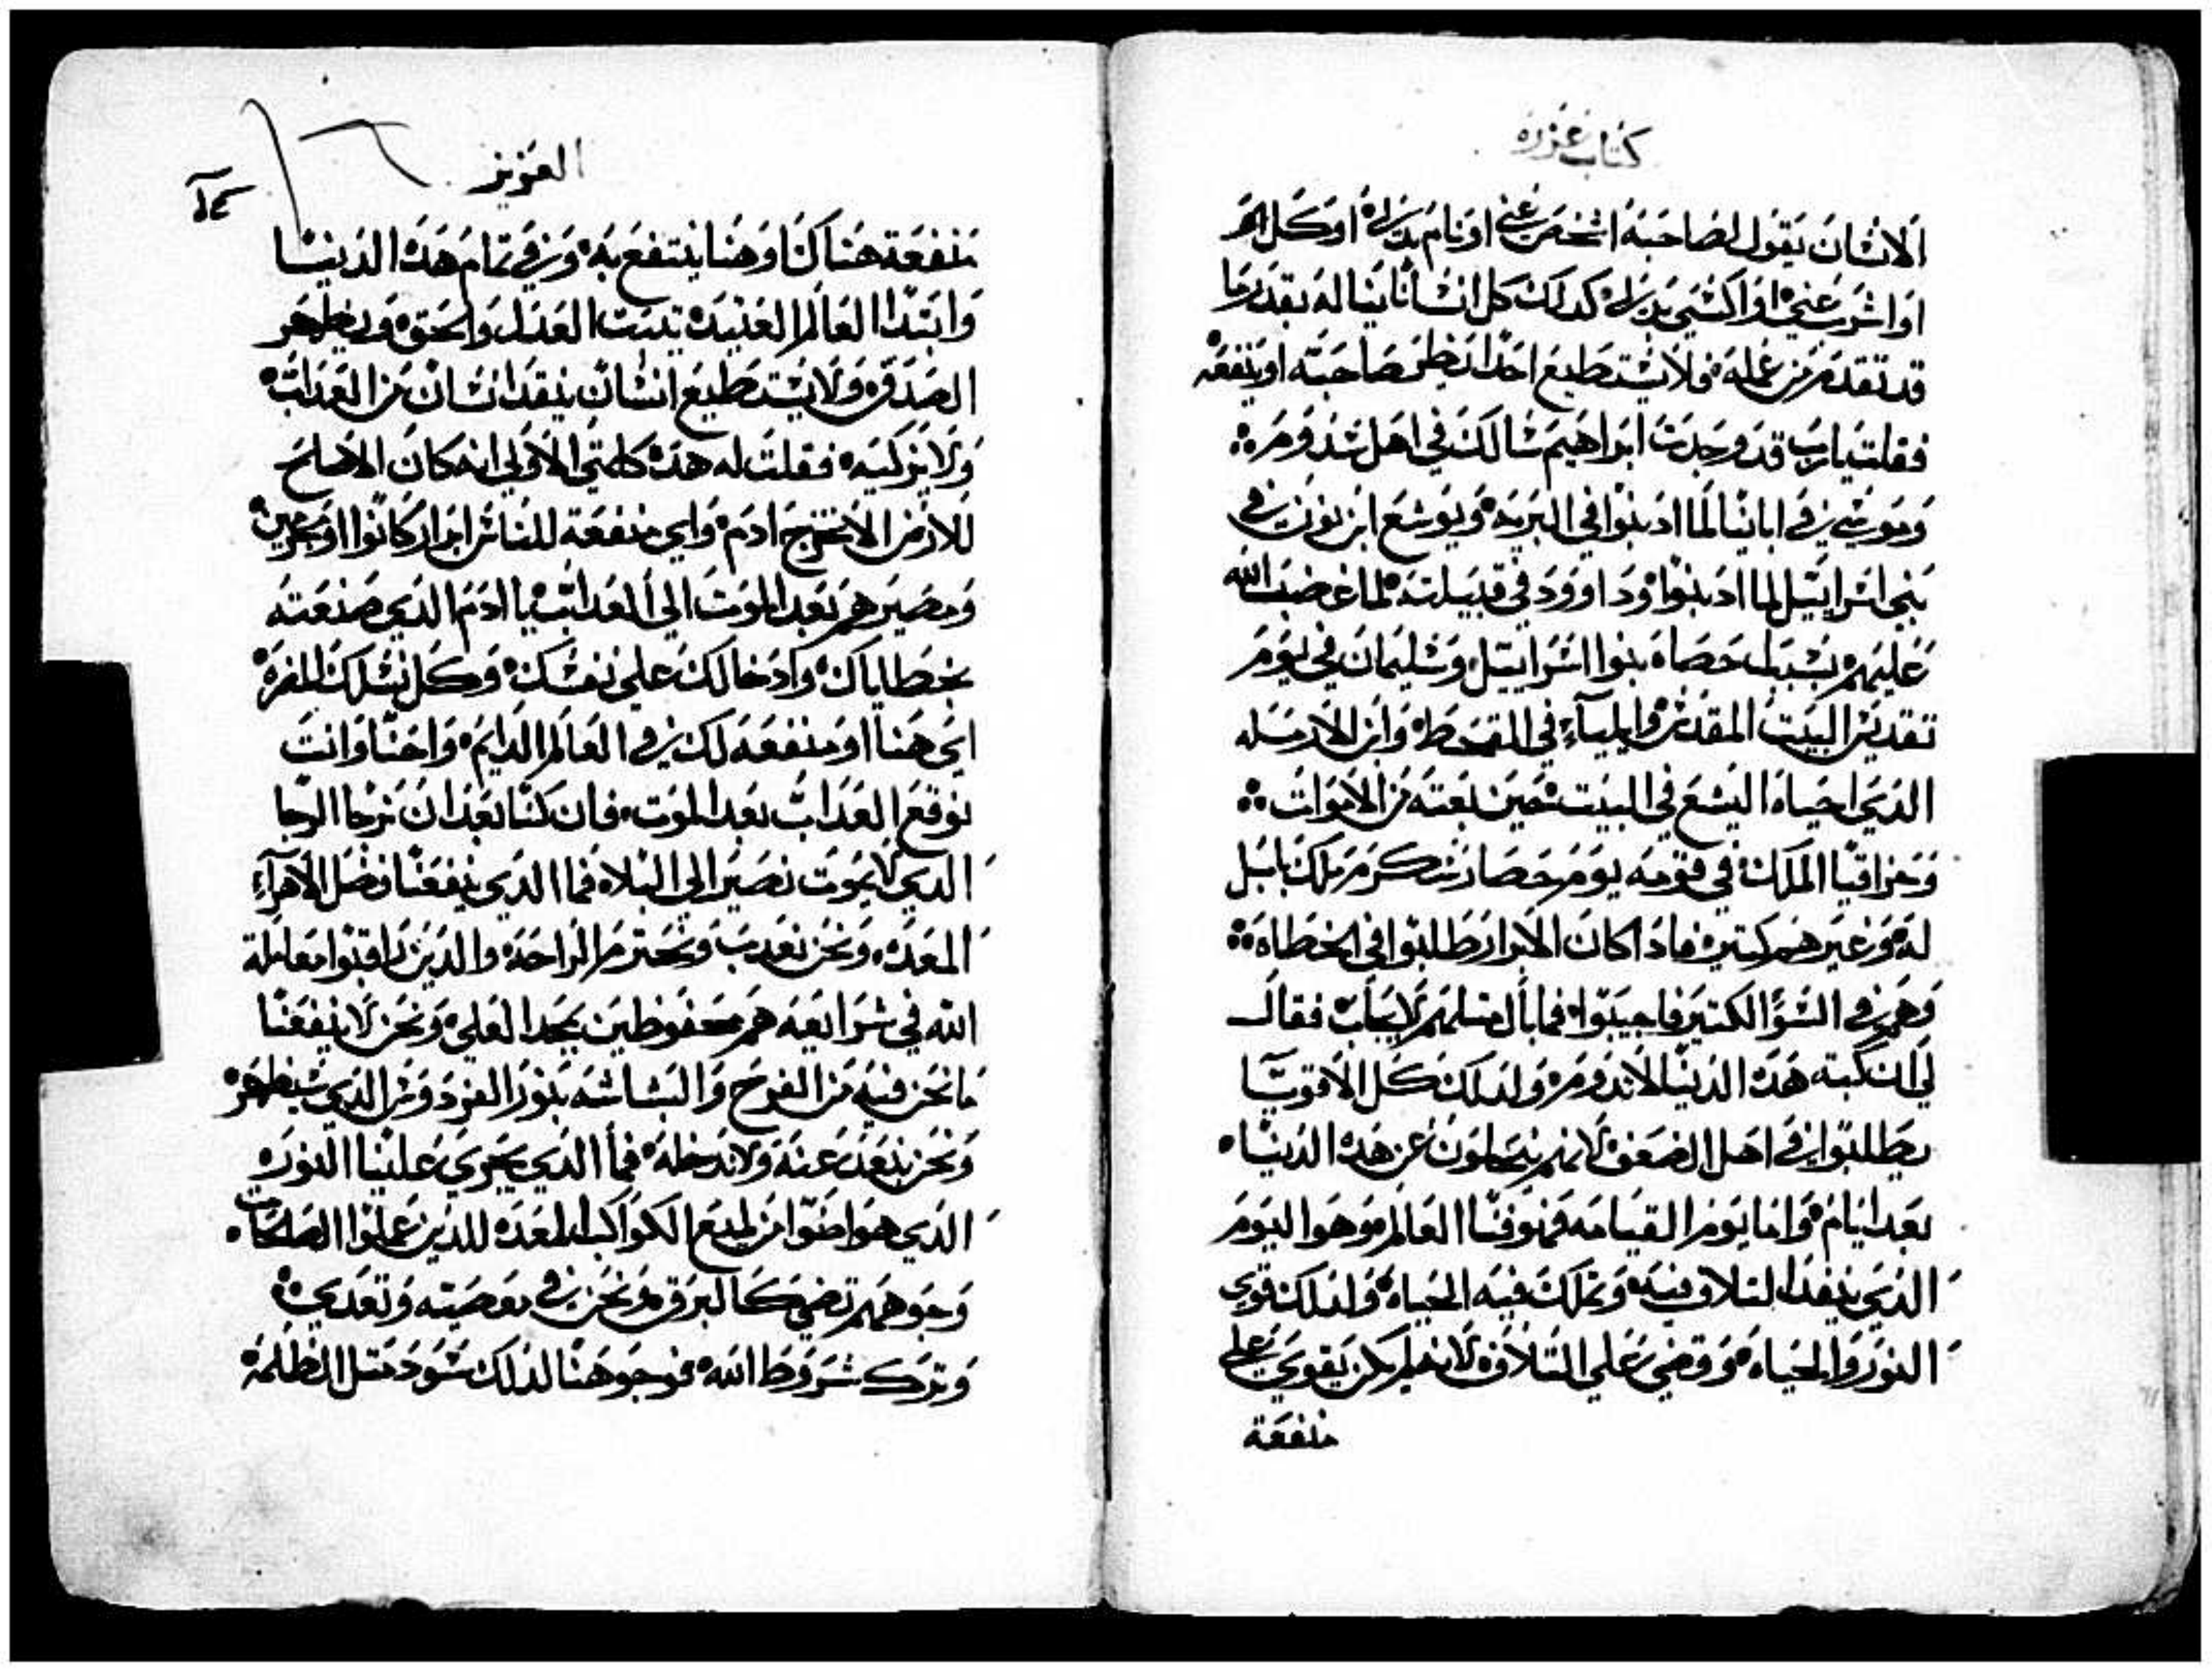 كتاب عزره
الانسان يقول لصاحبه اشخص عني او نام بدلي او كل
او اشرب عني او اكتسي بدلي كدلك كل انسانا يناله بقدر ما
قد تقدم من عمله فلا يستطيع احدا يظلم صاحبه او ينفعه
فقلت يارب قد وجدت ابراهيم سالك في اهل سدوم
وموسي في اباينا لما ادنبوا في البريه ويوشع ابن نون في
بني اسراييل لما ادنبوا وداوود في قبيلته لما غضب الله
عليهم بسبب حصاه بنوا اسراييل وسليمان في يوم
تقديس البيت المقدس وايلياء في القحط وابن الارمله
الدي احياه اليشع في البيت حين بعته من الاموات
وحزاقيا الملك في قومه يوم حصار عسكر ملك بابل
له وغيرهم كتير فادا كان الابرار طلبوا في الخطاه
وهم في السؤ الكتير فاجيبوا فما بال متلهم لا يجاب فقال
لي ان كبة هده الدنيا لا تدوم ولدلك كل الاقويا
يطلبوا في اهل الضعف لانهم يتجلون عن هده الدنيا
بعد ايام واما يوم القيامه فهو فنا العالم وهوا اليوم
الدي ينفد التلاف فيه وتملك فيه الحياه ولدلك قوي
النور والحياه وقضي علي التلاف لانه لم يكن يقوي علي
منفعة
العزيز
منفعة هناك وهنا ينتفع به وفي تمام هده الدنيا
وابتدا العالم العتيده تتبت العدل والحق ويظهر
الصدق ولا يستطيع انسان ينقد انسان من العداب
ولا يزكيه فقلت له هده كلمتي الاولي انه كان الاصلح
للارض الا تخرج ادم واي منفعة للناس ابرار كانوا او مجرمين
ومصيرهم بعد الموت الي العداب يا ادم الدي صنعته
بخطاياك وادخالك علي نفسك وكل نسلك المضره
اي هنا او منفعه لك في العالم الدايم واحنا وانت
نوقع العداب بعد الموت فان كنا بعد ان نرجا الرجا
الدي لا يموت نصير الي البلاه فما الدي ينفعنا فضل الاهراء
المعده ونحن نعدب ونحترم الراحه والدين راقبوا معاملة
الله في شرايعه هم محفوظين بمجد العلي ونحن لا ينفعنا
ما نحن فيه من الفرح والبشاشه بنور الفردوس الدي سيظهر
ونحن نبعد عنه ولا ندخله فما الدي يجري علينا النوره
الدي هوا اضوا من لميع الكواكب المعده للدين عملوا الصالحات
وجوههم تضي كالبرق ونحن في معصيته وتعديه
وترك شروط الله فوجوهنا لدلك سود متل الظلمه